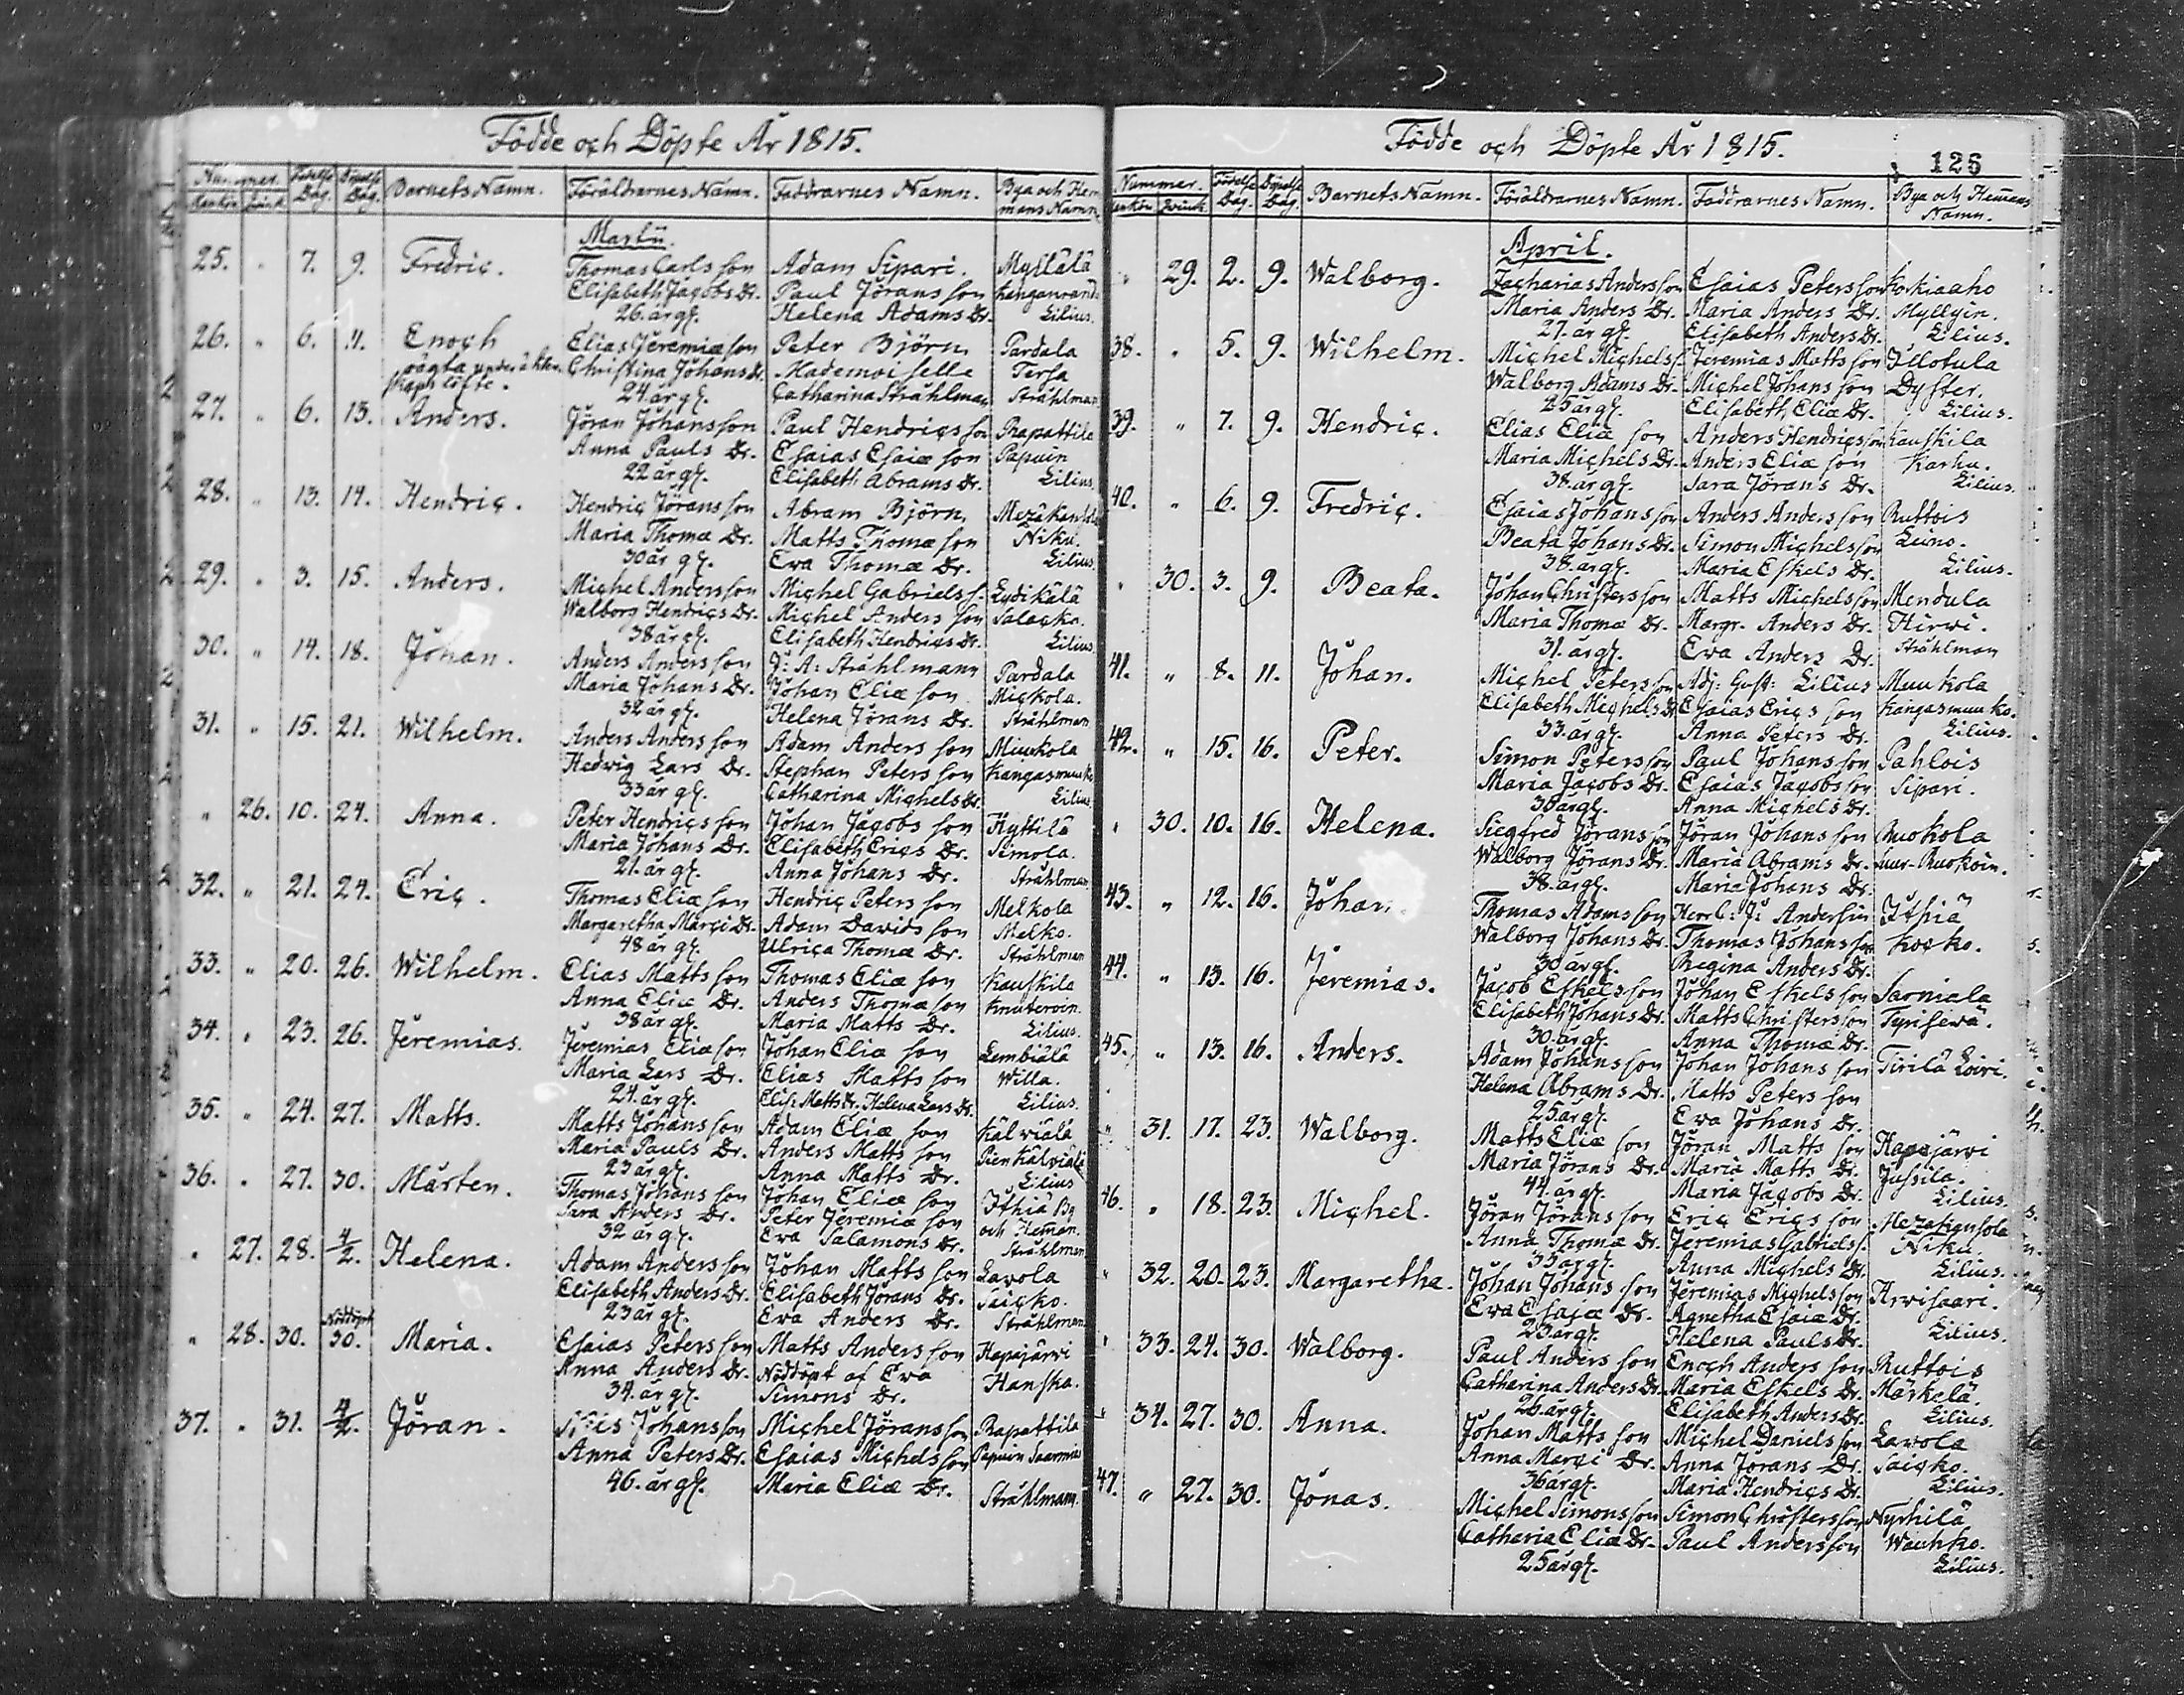 Födde och Döpte År 1815.
Nummer. Födelse Döpelse Barnets Namn. Föräldrarnes Namn. Faddrarnes Namn. Bya och Hem
Mankön Qvink. Dag. Dag. mans Namn.
Martii.
25. " 7. 9. Fredric. Thomas Carls son Adam Sipari. Myllälä
Elisabeth Jacobs Dr. Paul Jörans son Kangasrand
26. år gl. Helena Adams Dr. Lilius.
26. " 6. 11. Enoch Elias Jeremiæ son Peter Björn Pardala
oägta under äkten Christina Johans Dr. Mademoiselle Tersa
skaps löfte. 24 år gl. Catharina Stråhlman Stråhlman
27. " 6. 13. Anders. Jöran Johans son Paul Hendrics son Rapattila
Anna Pauls Dr. Esaias Esaiæ son Papuin
22 år gl. Elisabeth Abrams Dr. Lilius.
28. " 13. 14. Hendric. Hendric Jörans son Abram Björn Mezäkansola
Maria Thomæ Dr. Matts Thomæ son Niku.
30 år gl. Eva Thomæ Dr. Lilius.
29. " 3. 15. Anders. Michel Anders son Michel Gabriels s. Lydikälä
Walborg Hendrics Dr. Michel Anders son Salacko.
38 år gl. Elisabeth Hendrics Dr. Lilius.
30. " 14. 18. Johan. Anders Anders son J: A: Stråhlmann Pardala
Maria Johans Dr. Johan Eliæ son Mickola.
32 år gl. Helena Jörans Dr. Stråhlman
31. " 15. 21. Wilhelm. Anders Anders son Adam Anders son Muukola
Hedwig Lars Dr. Stephan Peters son Kangasmuuko
33 år gl. Catharina Michels Dr. Lilius
" 26. 10. 24. Anna. Peter Hendrics son Johan Jacobs son Hyttilä
Maria Johans Dr. Elisabeth Erics Dr. Simola.
21. år gl. Anna Johans Dr. Stråhlman
32. " 21. 24. Eric. Thomas Eliæ son Hendric Peters son Melkola
Margaretha Marci Dr. Adam Davids son Melko.
48 år gl. Ulrica Thomæ Dr. Stråhlman
33. " 20. 26. Wilhelm. Elias Matts son Thomas Eliæ son Kauskila
Anna Eliæ Dr. Anders Thomæ son Knuteroin.
38 år gl. Maria Matts Dr. Lilius.
34. " 23. 26. Jeremias. Jeremias Eliæ son Johan Eliæ son Lembiälä
Maria Lars Dr. Elias Matts son Willa.
24. år gl. Elis: Matts Dr. Helena Lars Dr. Lilius.
35. " 24. 27. Matts. Matts Johans son Adam Eliæ son Kälviälä
Maria Pauls Dr. Anders Matts son Pien Kälviälä
23 år gl. Anna Matts Dr. Lilius
36. " 27. 30. Mårten. Thomas Johans son Johan Eliæ son Ithiä By
Sara Anders Dr. Peter Jeremiæ son och Heman.
32 år gl. Eva Salamons Dr. Stråhlman
" 27. 28. 4/2. Helena. Adam Anders son Johan Matts son Lavola
Elisabeth Anders Dr. Elisabeth Jörans Dr. Saicko.
23 år gl. Eva Anders Dr. Stråhlman
Nöddöpt
" 28. 30. 30. Maria. Esaias Peters son Matts Anders son Hapajärvi
Anna Anders Dr. Nöddöpt af Eva Hanska.
34. år gl. Simons Dr.
37. " 31. 4/2. Jöran. Johans son Michel Jörans son Rapattila
Anna Peters Dr. Esaias Michels son Papuin
46. år gl. Maria Eliæ Dr. Stråhlmann.
Födde och Döpte År 1815.
126
Nummer. Födelse Döpelse Barnets Namn. Föräldrarnes Namn. Faddrarnes Namn. Bya och Hemans
Mankön Qvink. Dag. Dag. Namn.
April.
" 29. 2. 9. Walborg. Zacharias Anders son Esaias Peters son Koskiaaho
Maria Anders Dr. Maria Anders Dr. Myllyin.
27. år gl. Elisabeth Anders Dr. Lilius.
38. " 5. 9. Wilhelm. Michel Michels s. Jeremias Matts son Illotula
Walborg Adams Dr. Michel Johans son Dyster.
25 år gl. Elisabeth Eliæ Dr. Lilius.
39. " 7. 9. Hendric. Elias Eliæ son Anders Hendrics son Kauskila
Maria Michels Dr. Anders Eliæ son Karhu.
38. år gl. Sara Jörans Dr. Lilius.
40. " 6. 9. Fredric. Esaias Johans son Anders Anders son Ruttois
Beata Johans Dr. Simon Michels son Leino.
38. år gl. Maria Eskels Dr. Lilius.
" 30. 3. 9. Beata. Johan Christers son Matts Michels son Mendula
Maria Thomæ Dr. Margr. Anders Dr. Hirvi.
31. år gl. Eva Anders Dr. Stråhlman
41. " 8. 11. Johan. Michel Peters son Adj: Gust: Lilius Muukola
Elisabeth Michels Dr. Esaias Erics son Kangasmuuko.
33. år gl. Anna Peters Dr. Lilius.
42. " 15. 16. Peter. Simon Peters son Paul Johans son Pahlois
Maria Jacobs Dr. Esaias Jacobs son Sipari.
30 år gl. Anna Michels Dr.
" 30. 10. 16. Helena. Siegfred Jörans son Jöran Johans son Ruokola
Walborg Jörans Dr. Maria Abrams Dr. Suur-Ruokoin.
38. år gl. Maria Johans Dr.
43. " 12. 16. Johan. Thomas Adams son Herr C: J: Andersin Ithiä
Walborg Johans Dr. Thomas Johans son Kocko.
30 år gl. Regina Anders Dr.
44. " 13. 16. Jeremias. Jacob Eskels son Johan Eskels son Sarniala
Elisabeth Johans Dr. Matts Christers son Tyrisevä.
30. år gl. Anna Thomæ Dr.
45. " 13. 16. Anders. Adam Johans son Johan Johans son Tirilä Loiri.
Helena Abrams Dr. Matts Peters son
25 år gl. Eva Johans Dr.
" 31. 17. 23. Walborg. Matts Eliæ son Jöran Matts son Hapajärvi
Maria Jörans Dr. Maria Matts Dr. Jussila.
44. år gl. Maria Jacobs Dr. Lilius.
46. " 18. 23. Michel. Jöran Jörans son Eric Erics son Mezäkansola
Anna Thomæ Dr. Jeremias Gabriels s. Niku.
33 år gl. Anna Michels Dr. Lilius.
" 32. 20. 23. Margaretha. Johan Johans son Jeremias Michels son Arvisaari.
Eva Esaiæ Dr. Agnetha Esaiæ Dr.
23 år gl. Helena Pauls Dr. Lilius.
" 33. 24. 30. Walborg. Paul Anders son Enoch Anders son Ruttois
Catharina Anders Dr. Maria Eskels Dr. Märkelä.
26. år gl. Elisabeth Anders Dr. Lilius.
" 34. 27. 30. Anna. Johan Matts son Michel Daniels son Lavola
Anna Marci Dr. Anna Jörans Dr. Saicko.
36 år gl. Maria Hendrics Dr. Lilius.
47. " 27. 30. Jonas. Michel Simons son Simon Christers son Nyrhilä
Catharia Eliæ Dr. Paul Anders son Wauhko.
25 år gl. Lilius.